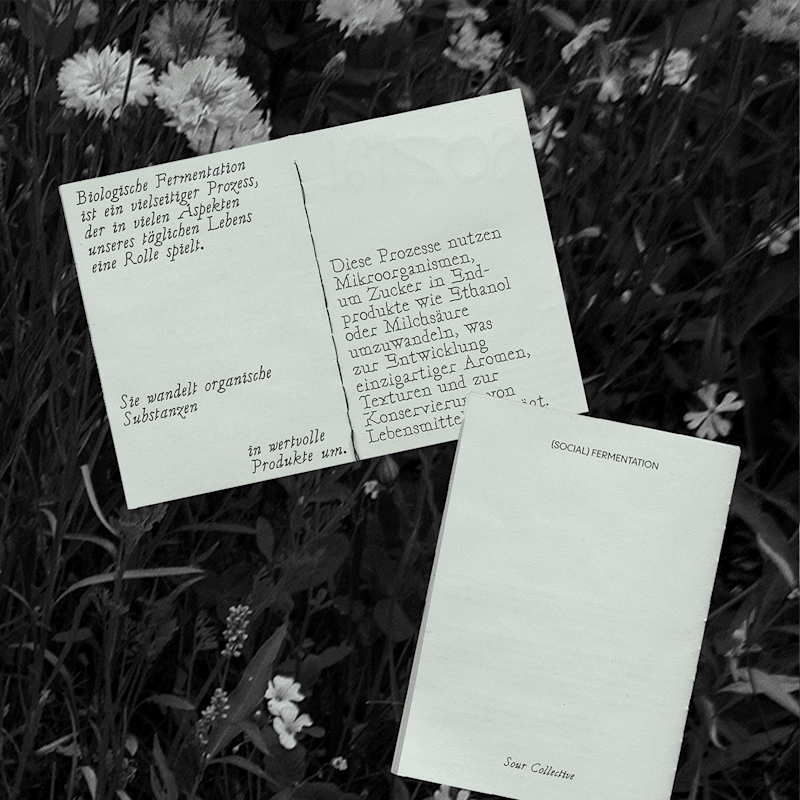 Biologische Fermentation
ist ein vielseitiger Prozess,
der in vielen Aspekten
unseres täglichen Lebens
eine Rolle spielt.
Sie wandelt organische
Substanzen
in wertvolle
Produkte um.
Diese Prozesse nutzen
Mikroorganismen,
um Zucker in End-
produkte wie Ethanol
oder Milchsäure
umzuwandeln, was
zur Entwicklung
einzigartiger Aromen,
Texturen und zur
Konservierung von
(SOCIAL) FERMENTATION
Sour Collective